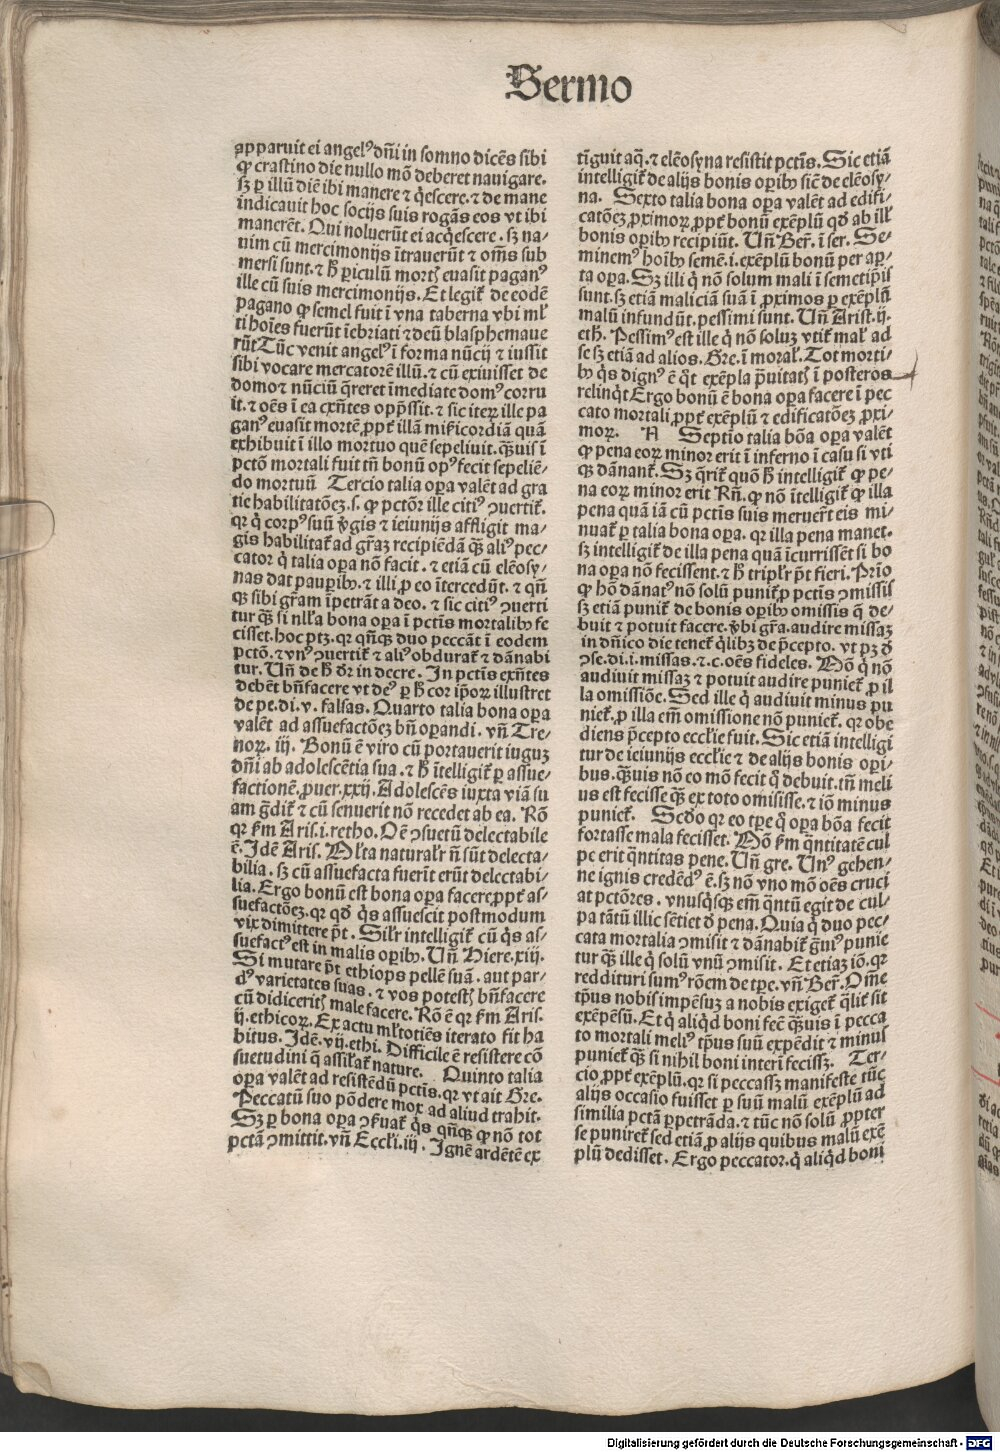 Sermo
apparuit ei angelꝰ dñi in somno dicẽs sibi
ꝙ crastino die nullo mõ deberet nauigare.
sꝫ ꝑ illũ diẽ ibi manere ⁊ q̇escere. ⁊ de mane
indicauit hoc socijs suis rogãs eos vt ibi
manerẽt. Qui noluerũt ei acq̇escere. sꝫ na-
uim cũ mercimonijs ĩtrauerũt ⁊ om̃s sub
mersi sunt. ⁊ ħ ꝑiculũ mortꝭ euasit paganꝰ
ille cũ suis mercimonijs. Et legit̃ de eodẽ
pagano ꝙ semel fuit ĩ vna taberna vbi ml̃
ti hoĩes fuerũt ĩebriati ⁊ deũ blasphemaue
rũt Tũc venit angelꝰ ĩ forma nũcij ⁊ iussit
sibi vocare mercatorẽ illũ. ⁊ cũ exiuisset de
domo ⁊ nũciũ q̃reret ĩmediate domꝰ corru
it. ⁊ oẽs ĩ ea exñtes opp̃ssit. ⁊ sic iteꝝ ille pa
ganꝰ euasit mortẽ ꝓpt̃ illã mĩcordiã quã
exhibuit ĩ illo mortuo quẽ sepeliuit. q̃uis ĩ
pctõ mortali fuit tñ bonũ opꝰ fecit sepeliẽ-
do mortuũ Tercio talia oꝑa valẽt ad gra
tie habilitatõeꝫ. s. ꝙ pctõr ille citiꝰ ꝯuertit̃.
qꝛ q̇ corpꝰ suũ v̓gis ⁊ ieiunijs affligit ma-
gis habilitat̃ ad gr̃aꝫ recipiẽdã q̃ꝫ aliꝰ pec-
cator q̇ talia oꝑa nõ facit. ⁊ etiã cũ elẽosy-
nas dat pauꝑibꝰ. ⁊ illi ꝓ eo ĩtercedũt. ⁊ qñ
qꝫ sibi gr̃am ĩpetrãt a deo. ⁊ sic citiꝰ ꝯuerti
tur q̃ꝫ si nĺla bona oꝑa ĩ pctĩs mortalibꝰ fe
cisset. hoc ptꝫ. qꝛ qñqꝫ duo peccãt ĩ eodem
pctõ. ⁊ vnꝰ ꝯuertit̃ ⁊ aliꝰ obdurat̃ ⁊ dãnabi
tur. Uñ de ħ dꝛ in decre. In pctĩs exñtes
debẽt bñfacere vt deꝰ ꝑ ħ cor ip̃oꝝ illustret
de pe. di. v. falsas. Quarto talia bona oꝑa
valẽt ad assuefactõeꝫ bñ oꝑandi. vñ Tre-
noꝝ. iij. Bonũ ẽ viro cũ portauerit iuguꝫ
dñi ab adolescẽtia sua. ⁊ ħ ĩtelligit̃ ꝑ assue-
factionẽ. ꝓuer. xxij. Adolescẽs iuxta viã su
am g̃dit̃ ⁊ cũ senuerit nõ recedet ab ea. Rõ
qꝛ ẜm Aris. i. retho. Oẽ ꝯsuetũ delectabile
ẽ. Idẽ Aris. Ml̃ta naturaĺr ñ sũt delecta-
bilia. sꝫ cũ assuefacta fuerĩt erũt delectabi-
lia. Ergo bonũ est bona oꝑa facere ꝓpt̃ as-
suefactõeꝫ. qꝛ qđ q̇s assuescit postmodum
vix dimittere p̃t. Siĺr intelligit̃ cũ q̇s as-
suefactꝰ est in malis oꝑibꝰ. Uñ Hiere. xiij.
Si mutare p̃t ethiops pellẽ suã. aut par-
dꝰ varietates suas. ⁊ vos potestꝭ bñfacere
cũ didiceritꝭ male facere. Rõ ẽ qꝛ ẜm Aris.
ij. ethicoꝝ. Ex actu ml̃totiẽs iterato fit ha
bitus. Idẽ. vij. ethi. Difficile ẽ resistere cõ
suetudini q̃ assiĺat̃ nature. Quinto talia
oꝑa valẽt ad resistẽdũ pctĩs. qꝛ vt ait Gre.
Peccatũ suo põdere mox ad aliud trahit.
Sꝫ ꝑ bona oꝑa ꝯẜuat̃ q̇s qñqꝫ ꝙ nõ tot
pctã ꝯmittit. vñ Eccĺi. iij. Ignẽ ardẽtẽ ex
tĩguit aq̃. ⁊ elẽosyna resistit pctĩs. Sic etiã
intelligit̃ de alijs bonis oꝑibꝰ sic̃ de elẽosy-
na. Sexto talia bona oꝑa valẽt ad edifi-
catõeꝫ ꝓximoꝝ ꝓpt̃ bonũ exẽplũ qđ ab ill̃
bonis oꝑibꝰ recipiũt. Uñ Ber. ĩ ser. Se-
minemꝰ hoĩbꝰ semẽ. i. exẽplũ bonũ per aꝑ-
ta oꝑa. Sꝫ illi q̇ nõ solum mali ĩ semetip̃is
sunt. sꝫ etiã maliciã suã ĩ ꝓximos ꝑ exẽplũ
malũ infundũt. pessimi sunt. Uñ Arist. ij.
etħ. Pessimꝰ est ille q̇ nõ soluꝫ vtit̃ mal̃ ad
se sꝫ etiã ad alios. Gre. ĩ moral̃. Tot morti-
bꝰ q̇s dignꝰ ẽ q̇t exẽpla p̃uitatꝭ ĩ posteros
relinq̇t Ergo bonũ ẽ bona oꝑa facere ĩ pec
cato mortali ꝓpt̃ exẽplũ ⁊ edificatõeꝫ ꝓxi-
moꝝ. A Septĩo talia bõa oꝑa valẽt
ꝙ pena eoꝝ minor erit ĩ inferno ĩ casu si vti
qꝫ dãnant̃. Sꝫ q̃rit̃ quõ ħ intelligit̃ ꝙ pe-
na eoꝝ minor erit Rñ. ꝙ nõ ĩtelligit̃ ꝙ illa
pena quã iã cũ pctĩs suis meruer̃t eis mi-
nuat̃ ꝑ talia bona oꝑa. qꝛ illa pena manet.
sꝫ intelligit̃ de illa pena quã ĩcurrissẽt si bo
na oꝑa nõ fecissent. ⁊ ħ tripĺr p̃t fieri. Prĩo
ꝙ hõ dãnatꝰ nõ solũ punit̃ ꝓ pctĩs ꝯmissis
sꝫ etiã punit̃ de bonis oꝑibꝰ omissis q̃ de-
buit ⁊ potuit facere. v̓bi gr̃a. audire missaꝫ
in dñico die tenet̃ q̇libꝫ de p̃cepto. vt pꝫ đ
ꝯse. di. i. missas. ⁊. c. oẽs fideles. Mõ q̇ nõ
audiuit missaꝫ ⁊ potuit audire puniet̃ ꝓ il
la omissiõe. Sed ille q̇ audiuit minus pu
niet̃. ꝓ illa em̃ omissione nõ puniet̃. qꝛ obe
diens p̃cepto eccĺie fuit. Sic etiã intelligi
tur de ieiunijs eccĺie ⁊ de alijs bonis oꝑi-
bus. q̃uis nõ eo mõ fecit q̊ debuit. tñ meli
us est fecisse q̃ꝫ ex toto omisisse. ⁊ iõ minus
puniet̃. Scđo qꝛ eo tꝑe q̊ oꝑa bõa fecit
fortasse mala fecisset. Mõ ẜm q̃ntitatẽ cul
pe erit q̃ntitas pene. Uñ gre. Unꝰ gehen-
ne ignis credẽdꝰ ẽ. sꝫ nõ vno mõ oẽs cruci
at pctõres. vnusq̇sqꝫ em̃ q̃ntũ egit de cul-
pa tãtũ illic sẽtiet đ pena. Quia q̇ duo pec-
cata mortalia ꝯmisit ⁊ dãnabit̃ g̃uiꝰ punie
tur q̃ꝫ ille q̇ solũ vnũ ꝯmisit. Et etiaꝫ iõ. qꝛ
reddituri sumꝰ rõem de tꝑe. vñ Ber. Om̃e
tp̃us nobis impẽsuꝫ a nobis exiget̃ q̃lit̃ sit
exẽpẽsũ. Et q̇ aliq̇d boni fec̃ q̃uis ĩ pecca
to mortali meliꝰ tp̃us suũ expẽdit ⁊ minus
puniet̃ q̃ꝫ si nihil boni interĩ fecissꝫ. Ter-
cio ꝓpt̃ exẽplũ. qꝛ si peccassꝫ manifeste tũc
alijs occasio fuisset ꝑ suũ malũ exẽplũ ad
similia pctã ꝑpetrãda. ⁊ tũc nõ solũ ꝓpter
se puniret̃ sed etiã ꝓ alijs quibus malũ exẽ
plũ dedisset. Ergo peccator. q̇ aliq̇d boni
Digitalisierung gefördert durch die Deutsche Forschungsgemeinschaft - DFG